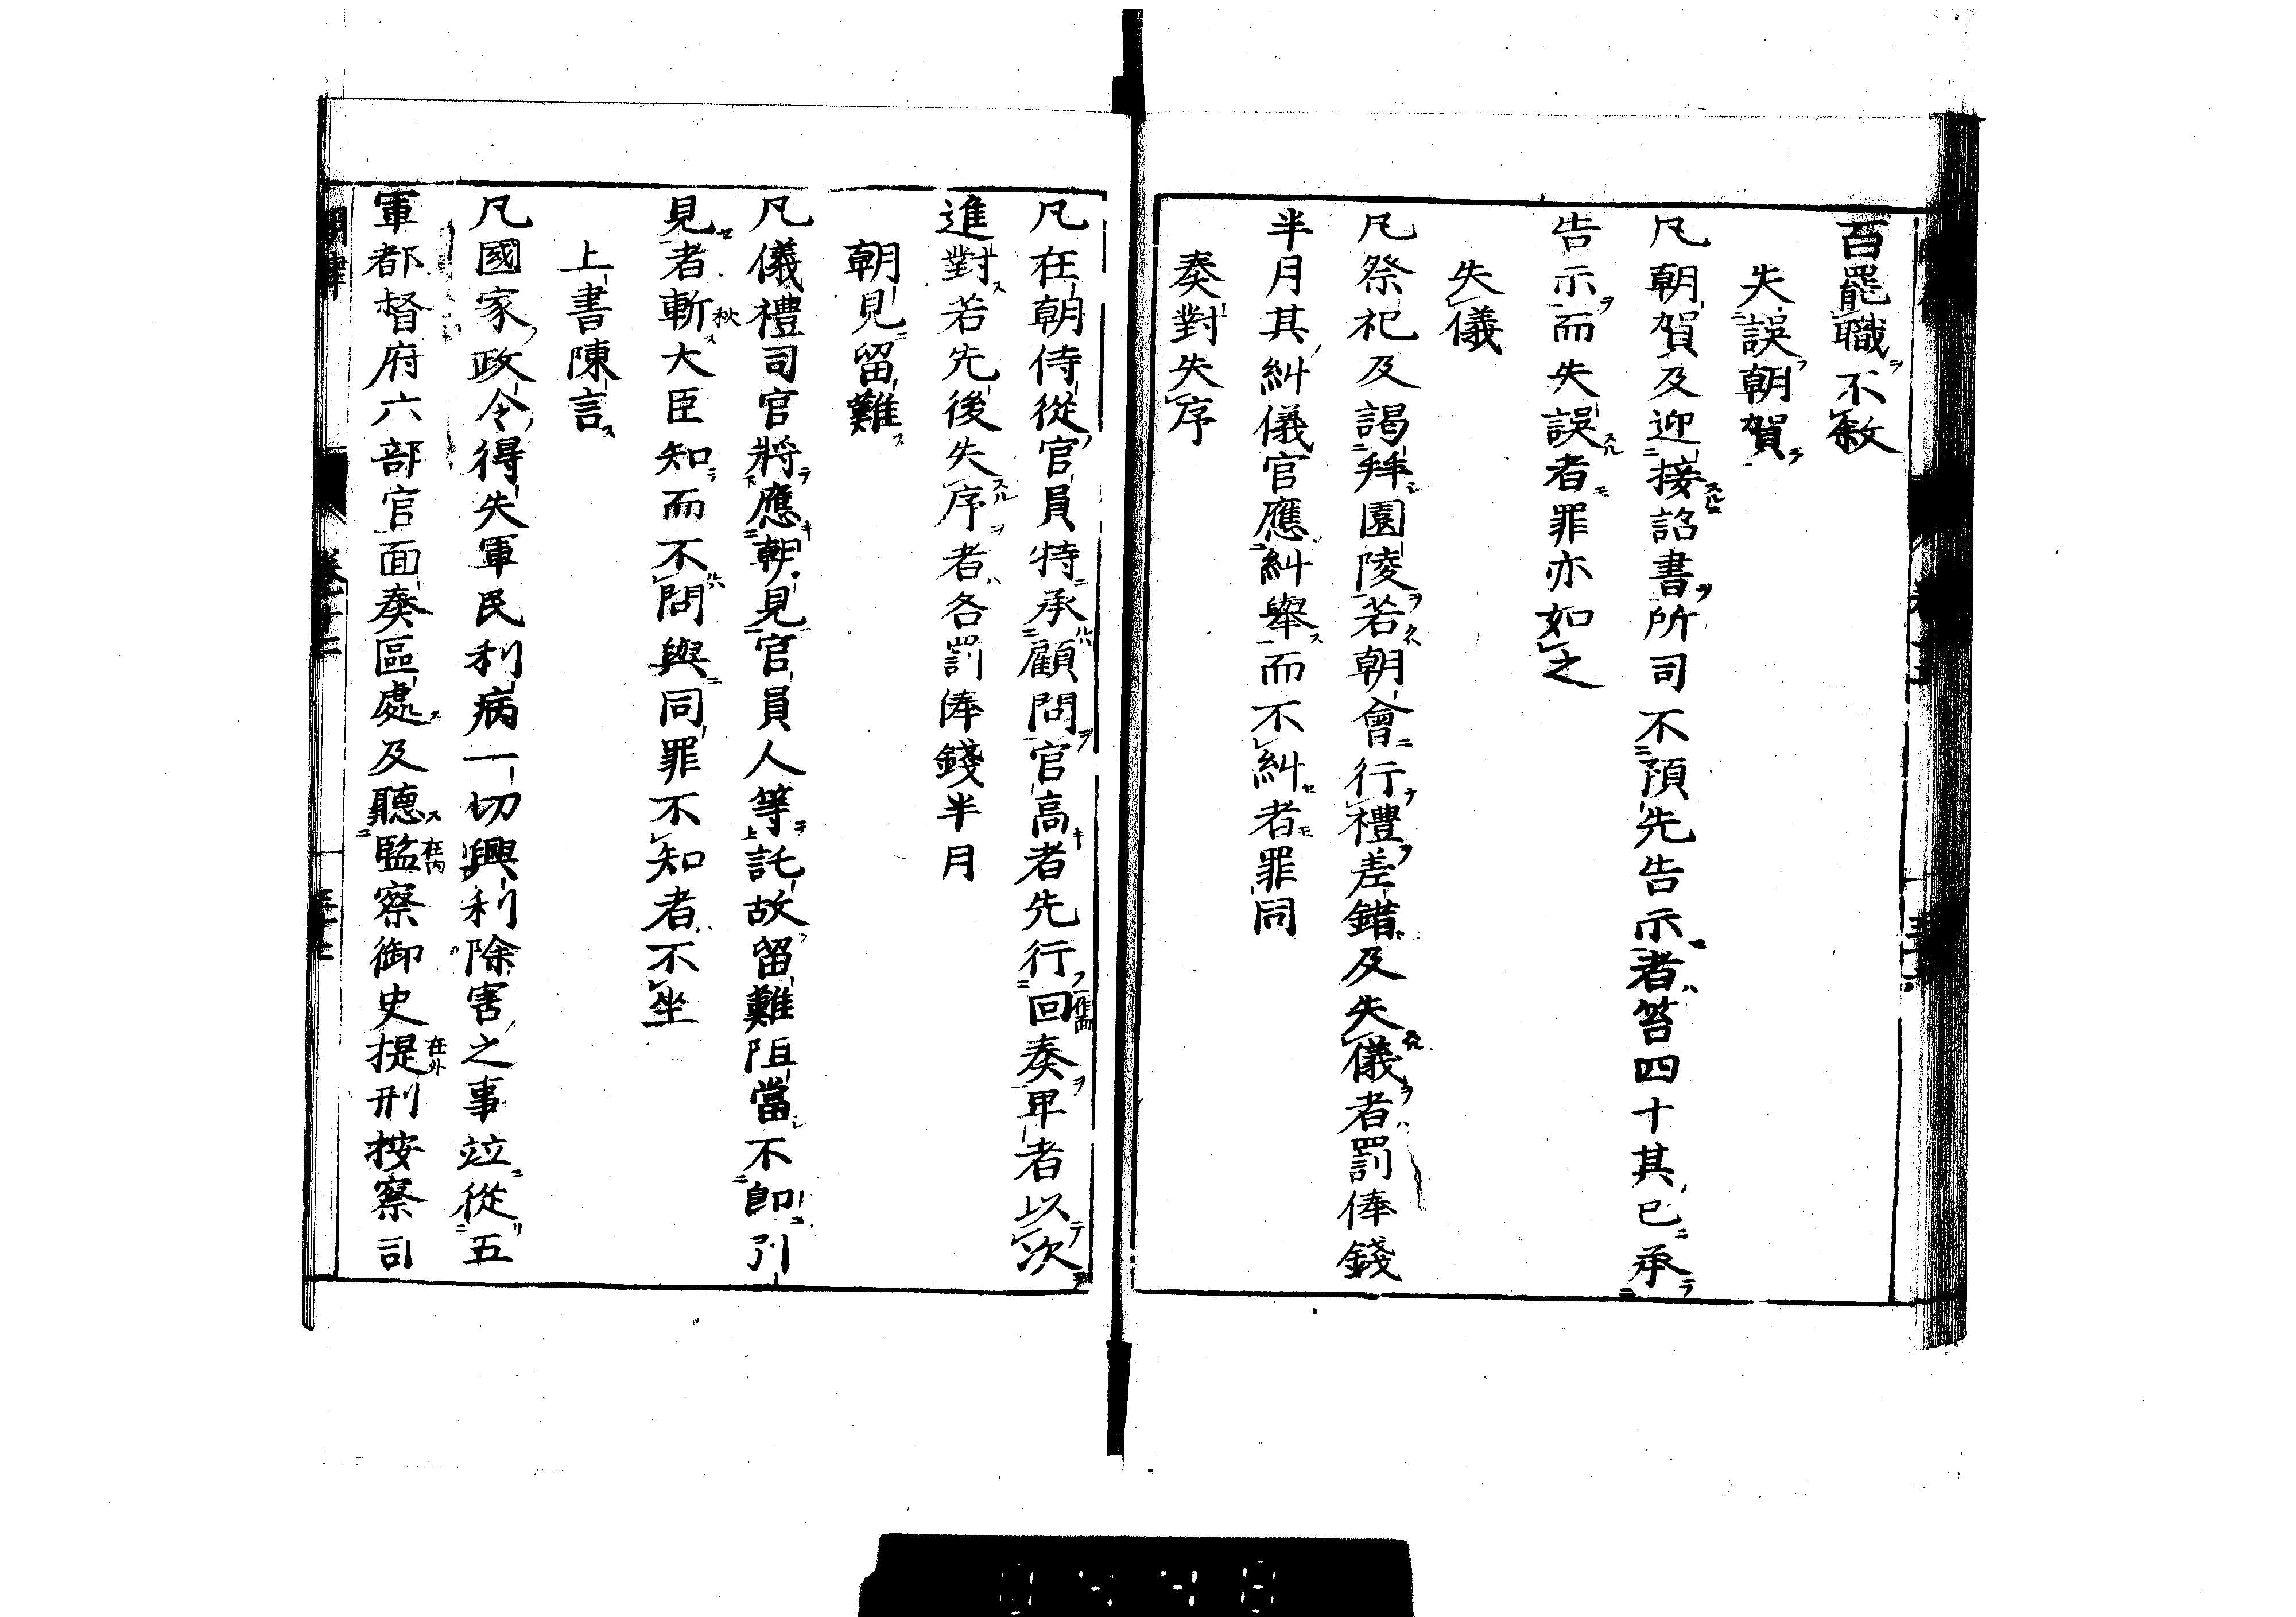 百罷職不敘
失誤朝賀
凡朝賀及迎接詔書所司不預先告示者笞四十其已承
告示而失誤者罪亦如之
失儀
凡祭祀及謁拜園陵若朝會行禮差錯及失儀者罰俸錢
半月其糾儀官應糾舉而不糾者罪同
奏對失序
凡在朝侍從官員特承顧問官高者先行回奏卑者以次
進對若先後失序者各罰俸錢半月
朝見留難
凡儀禮司官將應朝見官員人等託故留難阻當不即引
見者斬秋大臣知而不問與同罪不知者不坐
上書陳言
凡國家政令得失軍民利病一切興利除害之事竝從五
軍都督府六部官面奏區處及聽監在內察御史提在外刑按察司